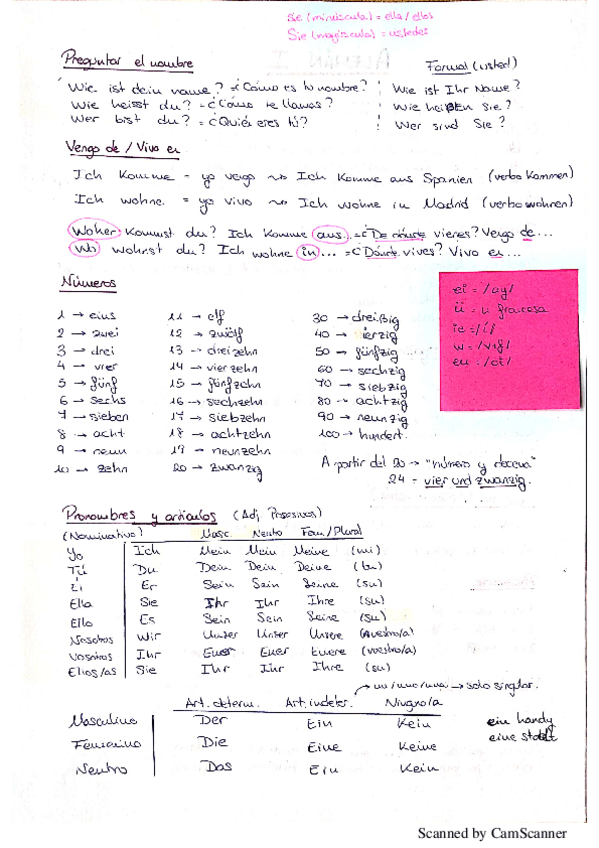 Sie (minúscula) = ella/ellos
Sie (mayúscula) = ustedes
Preguntar el nombre
Formal (usted)
Wie ist dein name? = ¿Cómo es tu nombre?
Wie ist Ihr Name?
Wie heisst du? = ¿Cómo te llamas?
Wie heißen Sie?
Wer bist du? = ¿Quién eres tú?
Wer sind Sie?
Vengo de / Vivo en
Ich Komme = yo vengo ~> Ich Komme aus Spanien (verbo Kommen)
Ich wohne = yo vivo ~> Ich wohne in Madrid (verbo wohnen)
Woher Kommst du? Ich Komme aus... = ¿De dónde vienes? Vengo de...
Wo wohnst du? Ich wohne in... = ¿Dónde vives? Vivo en...
Números
ei = /ay/
ü = u francesa
ie = /i/
eu = /oi/
1 → eins
11 → elf
30 → dreißig
2 → zwei
12 → zwölf
40 → vierzig
3 → drei
13 → dreizehn
50 → fünfzig
4 → vier
14 → vierzehn
60 → sechzig
5 → fünf
15 → fünfzehn
70 → siebzig
6 → sechs
16 → sechzehn
80 → achtzig
7 → sieben
17 → siebzehn
90 → neunzig
8 → acht
18 → achtzehn
100 → hundert.
9 → neun
19 → neunzehn
10 → zehn
20 → zwanzig
A partir del 20 → "número y decena"
24 = vier und zwanzig.
Pronombres y artículos (Adj. Posesivos)
(Nominativo) Masc. Neutro Fem/Plural
Yo Ich Mein Mein Meine (mi)
Tú Du Dein Dein Deine (tu)
Él Er Sein Sein Seine (su)
Ella Sie Ihr Ihr Ihre (su)
Ello Es Sein Sein Seine (su)
Nosotros Wir Unser Unser Unsere (nuestro/a)
Vosotros Ihr Euer Euer Euere (vuestro/a)
Ellos/as Sie Ihr Ihr Ihre (su)
un/uno/una → solo singular.
Art. determ. Art. indeter. Ninguno/a
Masculino Der Ein Kein
ein handy
Femenino Die Eine Keine
eine stadt
Neutro Das Ein Kein
Scanned by CamScanner